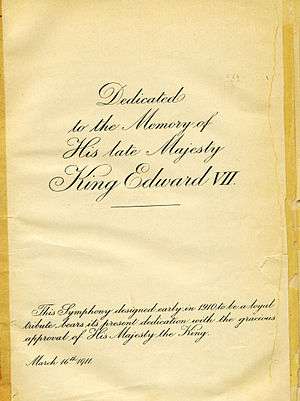 Dedicated
to the Memory of
His late Majesty
King Edward VII.
This Symphony designed early in 1910 to be a loyal
tribute, bears its present dedication with the gracious
approval of His Majesty the King.
March 16th 1911.